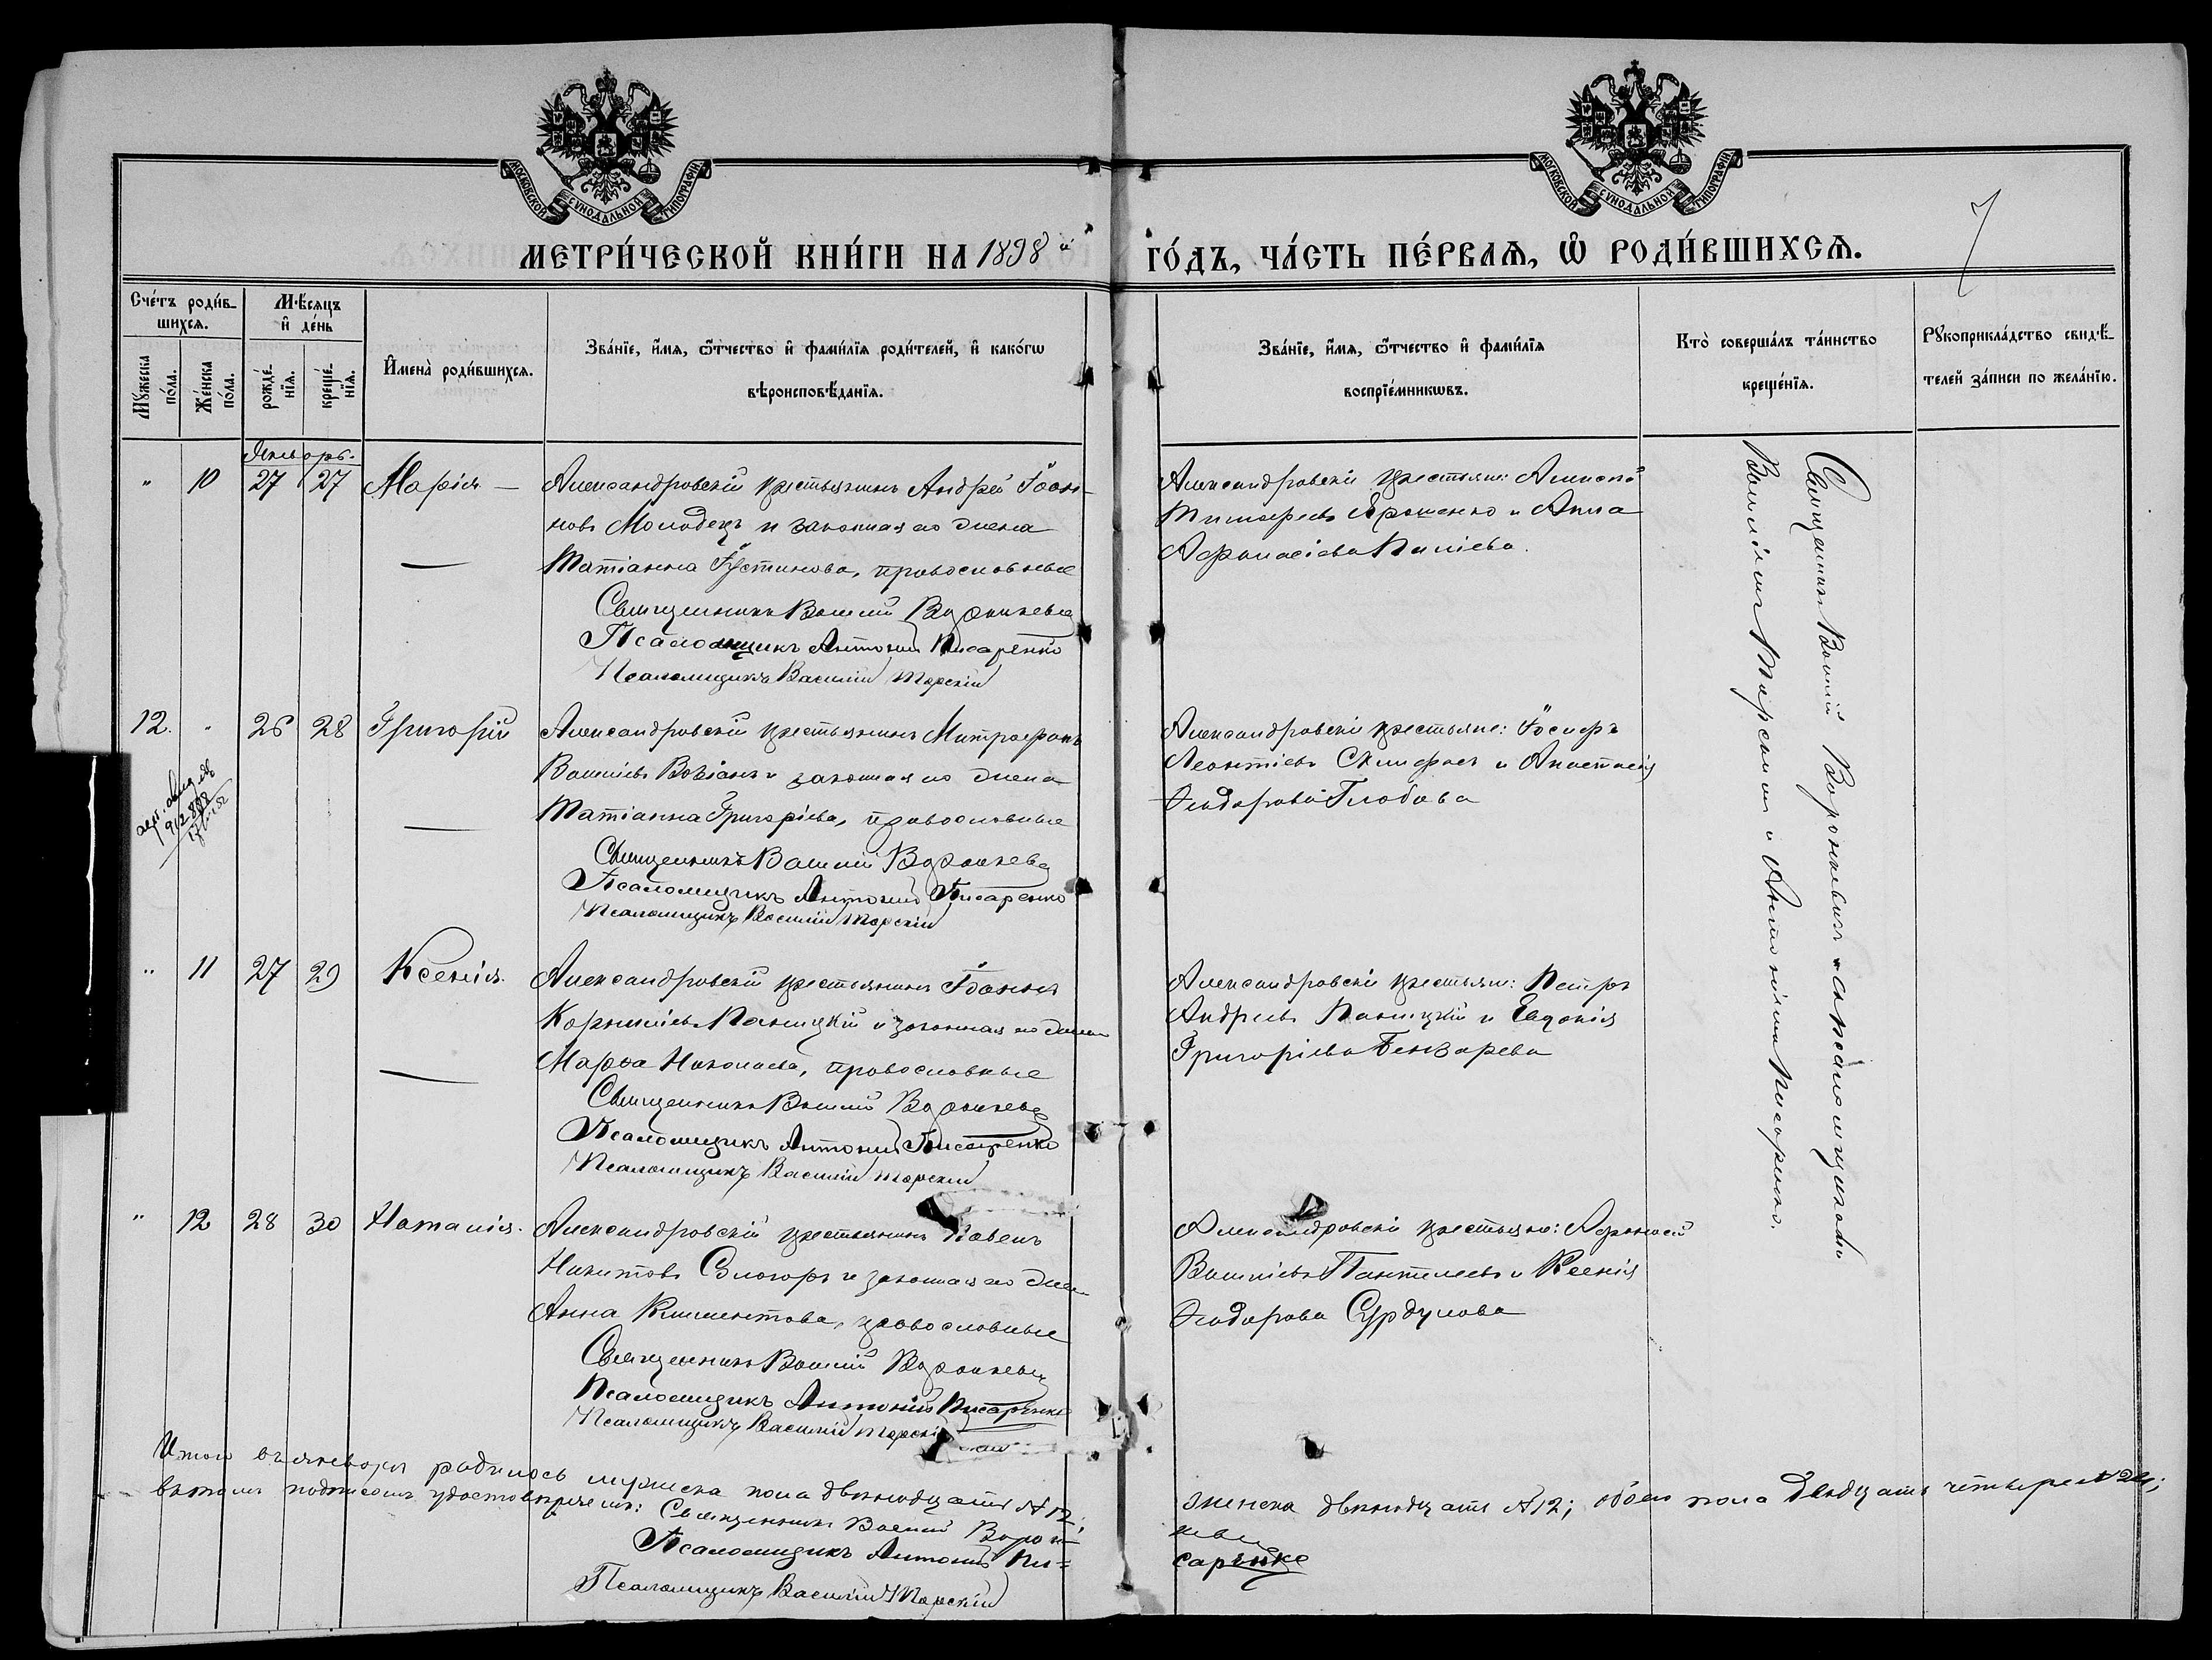 МОСКОВСКОЙ СУНОДАЛЬНОЙ ТИПОГРАФІИ
МОСКОВСКОЙ СУНОДАЛЬНОЙ ТИПОГРАФІИ
7
МЕТРИ́ЧЕСКОЙ КНИ́ГИ НА 1898й
ГО́ДЪ, ЧА́СТЬ ПЕ́РВАЯ, Ѡ҆ РОДИ́ВШИХСЯ.
Сче́тъ роди́в-
шихся.
Мѣ́сяцъ
и҆ де́нь
Му́жеска
по́ла.
Же́нска
по́ла.
рожде́-
нїя.
креще́-
нїя.
И҆мена̀ роди́вшихся.
Зва́нїе, и҆́мя, ѻ҆́тчество и҆ фами́лїя роди́телей, и҆ како́гѡ
вѣроисповѣ́данїя.
Зва́нїе, и҆́мя, ѻ҆́тчество и҆ фами́лїя
воспрїе́мникѡвъ.
Кто̀ соверша́лъ та́инство
креще́нїя.
Рукоприкла́дство свидѣ́-
телей за́писи по жела́нїю.
Январь.
" 10 27 27 Марія —
Александровскій крестьянинъ Андрей Іоан-
новъ Молодецъ и законная его жена
Татіанна Іустинова, православные
Священникъ Василій Воронкевичъ
Псаломщикъ Антоній Писаренко
Псаломщикъ Василій Торскій
Александровскіе крестьяне: Алексѣй
Тимофеевъ Ерошенко и Анна
Афанасіева
12. " 26 28 Григорій
Александровскій крестьянинъ Митрофанъ
Василіевъ и законная его жена
Татіанна Григоріева, православные
Священникъ Василій Воронкевичъ
Псаломщикъ Антоній Писаренко
Псаломщикъ Василій Торскій
Александровскіе крестьяне: Іосифъ
Леонтіевъ и Анастасія
Ѳеодорова Глобова
" 11 27 29 Ксенія.
Александровскій крестьянинъ Іоаннъ
Корниліевъ Паницкій и законная его жена
Марѳа Николаева, православные
Священникъ Василій Воронкевичъ
Псаломщикъ Антоній Писаренко
Псаломщикъ Василій Торскій
Александровскіе крестьяне: Петръ
Андреевъ Паницкій и Евдокія
Григоріева Бензарева
" 12 28 30 Наталія.
Александровскій крестьянинъ Павелъ
Никитовъ и законная его жена
Анна Климентова, православные
Священникъ Василій Воронкевичъ
Псаломщикъ Антоній Писаренко
Псаломщикъ Василій Торскій
Александровскіе крестьяне: Афанасій
Василіевъ Пантелеевъ и Ксенія
Ѳеодорова Сурдулова
Священникъ Василій Воронкевичъ съ псаломщиками
Василіемъ Торскимъ и Антоніемъ Писаренко.
Итого въ январѣ родилось мужеска пола двѣнадцать №12;
женска двѣнадцать №12; обоего пола двадцать четыре №24;
въ томъ подписомъ удостовѣряемъ: Священникъ Василій Ворон-
кевичъ
Псаломщикъ Антоній Пи-
саренко
Псаломщикъ Василій Торскій